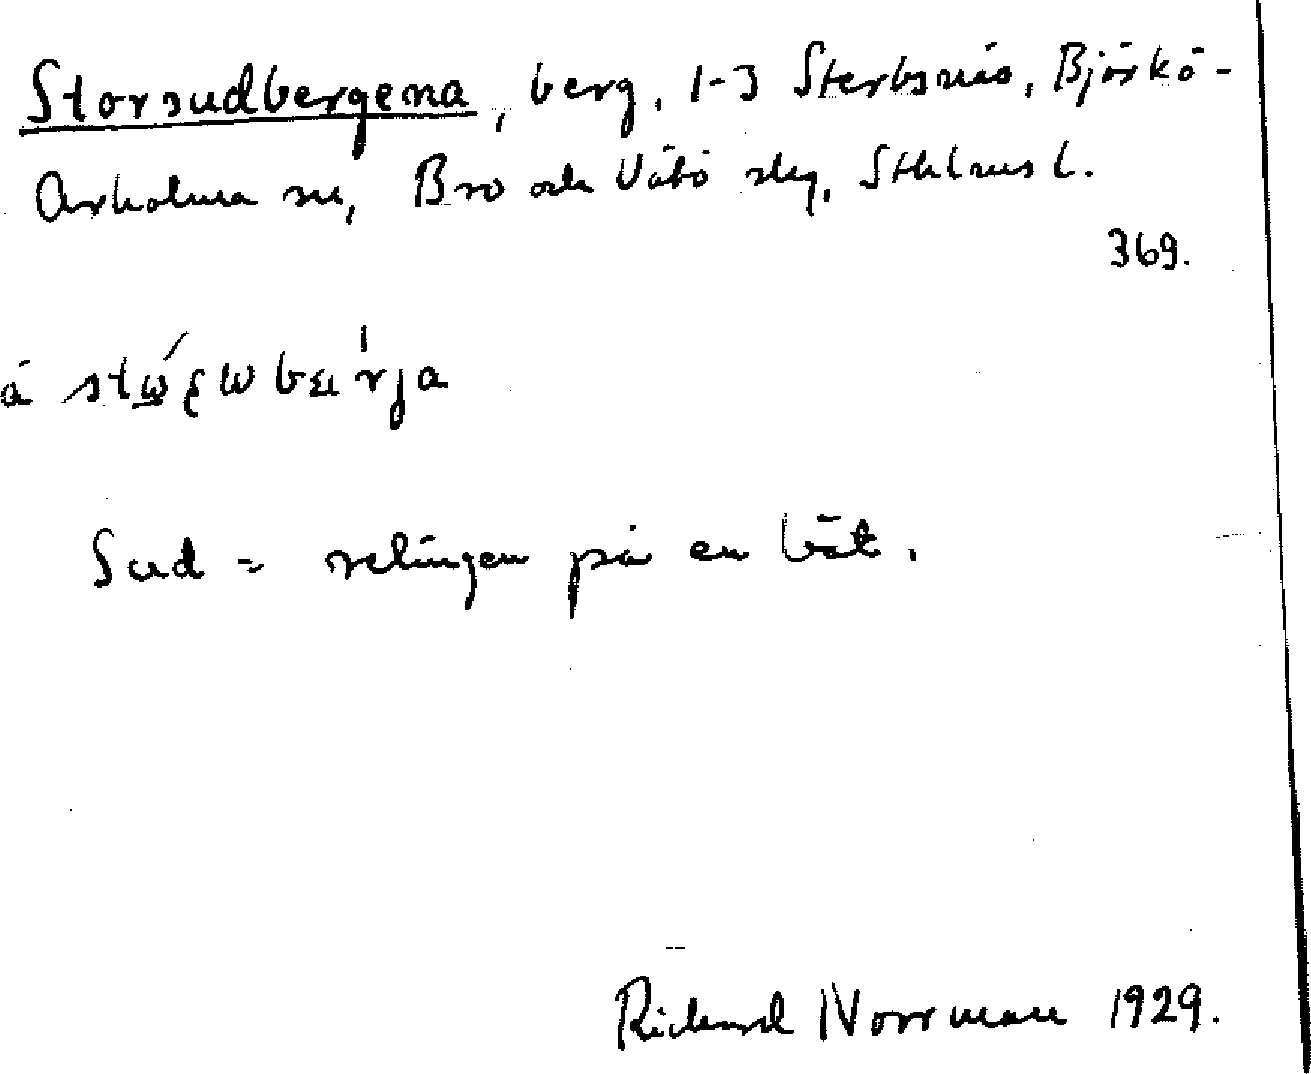 Storsudbergena, berg, 1-3 Sterbsnäs, Björkö-
Arholma sn, Bro och Vätö skg, Sthlms l.
369.
å
Sud = relingen på en båt.
Richard Norrman 1929.